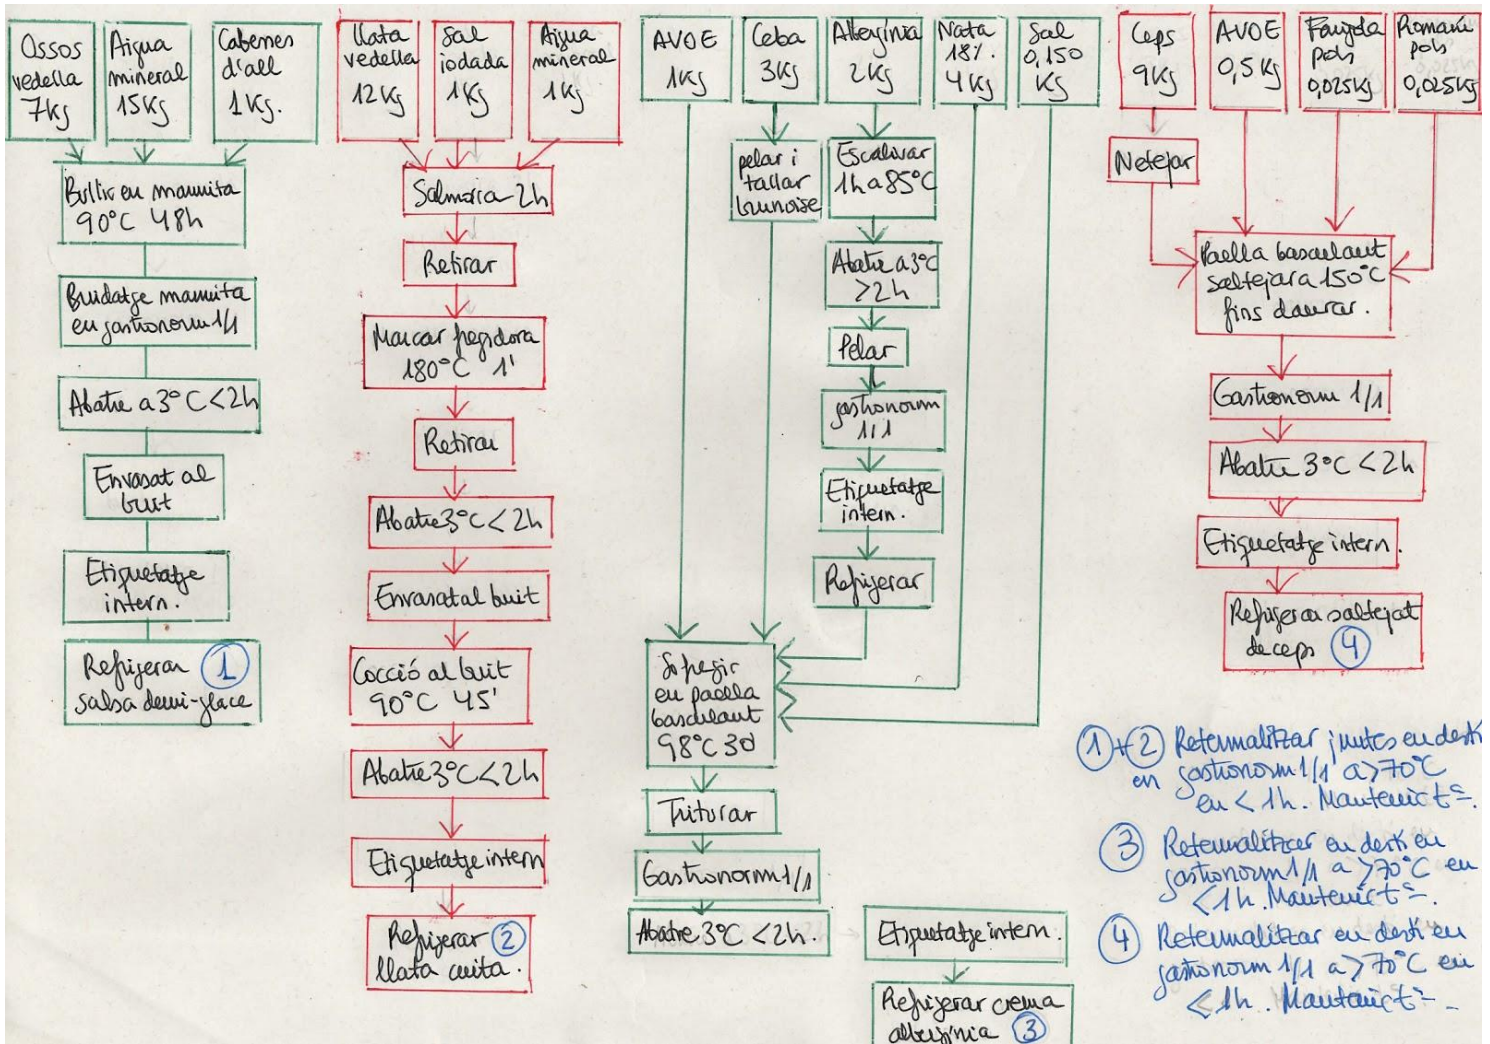 Ossos
vedella
7Kg
Aigua
mineral
15Kg
Cabeces
d'all
1Kg.
Bullir en marmita
90°C 48h
Buidatge marmita
en gastronorm 1/1
Abatre a 3°C <2h
Envasat al
buit
Etiquetatge
intern.
Refrigerar 1
salsa demi-glace
Llata
vedella
12Kg
Sal
iodada
1Kg
Aigua
mineral
1Kg
Salmorra 2h
Retirar
Marcar fregidora
180°C 1'
Retirar
Abatre 3°C <2h
Envasat al buit
Cocció al buit
90°C 45'
Abatre 3°C <2h
Etiquetatge intern
Refrigerar 2
llata cuita.
AVOE
1Kg
Ceba
3Kg
Albergínia
2Kg
Nata
18%
4Kg
Sal
0,150
Kg
pelar i
tallar
brunoise
Escalivar
1h a 85°C
Abatre a 3°C
>2h
Pelar
gastronorm
1/1
Etiquetatge
intern.
Refrigerar
Sofregir
en paella
basculant
98°C
Triturar
Gastronorm 1/1
Abatre 3°C <2h.
Etiquetatge intern.
Refrigerar crema
albergínia 3
Ceps
9Kg
AVOE
0,5Kg
Farigola
pols
0,025Kg
Romaní
pols
0,025Kg
Netejar
Paella basculant
saltejar a 150°C
fins daurar.
Gastronorm 1/1
Abatre 3°C <2h
Etiquetatge intern.
Refrigerar saltejat
de ceps 4
1+2 Retermalitzar juntes en destí
en gastronorm 1/1 a >70°C
en <1h. Mantenir tª.
3 Retermalitzar en destí en
gastronorm 1/1 a >70°C en
<1h. Mantenir tª.
4 Retermalitzar en destí en
gastronorm 1/1 a >70°C en
<1h. Mantenir tª.